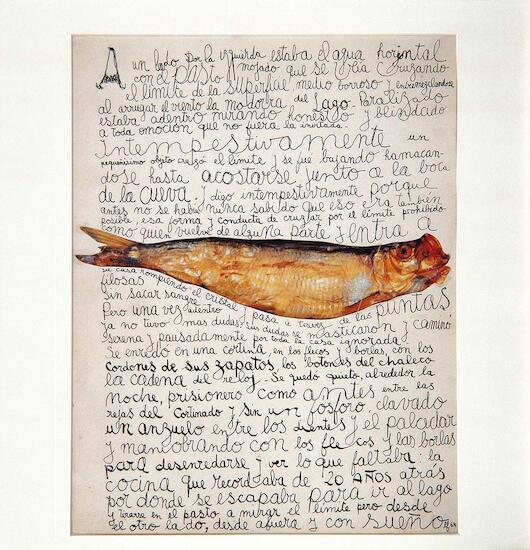 A un lado por la izquierda estaba el agua horizontal
con el pasto mojado que se veia cruzando
el limite de la superficie medio borroso y entremezclandose
al arrugar el viento la modorra del lago. Paralizado
estaba adentro mirando honesto y blindado
a toda emoción que no fuera la invitada.
Intempestivamente un
pequeñisimo objeto cruzó el limite y se fue bajando hamacan-
dose hasta acostarse junto a la boca
de la cueva. y digo intempestivamente porque
antes no se habia nunca sabido que eso era tambien
posible, esa forma y conducta de cruzar por el limite prohibido
como quien vuelve de alguna parte y entra a
su casa rompiendo el cristal y pasa a traves de las puntas
filosas
Sin sacar sangre
Pero una vez adentro
ya no tuvo mas dudas; sus dudas se masticaron y caminó
serena y pausadamente por toda la casa ignorada
Se enredó en una cortina, en los flecos y borlas, con los
cordones de sus zapatos, los botones del chaleco
la cadena del reloj. Se quedó quieto, alrededor la
noche, prisionero como antes entre las
rejas del cortinado y sin un fosforo clavado
un anzuelo entre los dientes y el paladar
y maniobrando con los flecos y las borlas
para desenredarse y ver lo que faltaba: la
cocina que recordaba de 20 años atrás
por donde se escapaba para ir al lago
y tirarse en el pasto a mirar el limite pero desde
el otro lado, desde afuera y con sueño